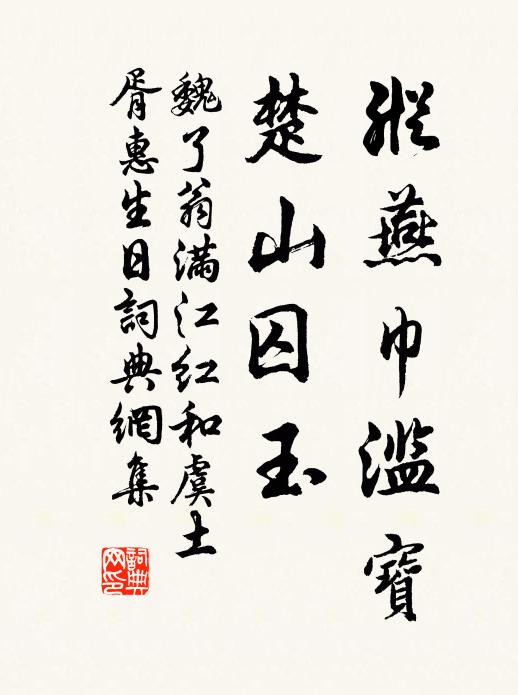 縱燕巾濫寶
楚山囚玉
魏了翁滿江紅和虞士
胥惠生日詞典網集
詞典網印